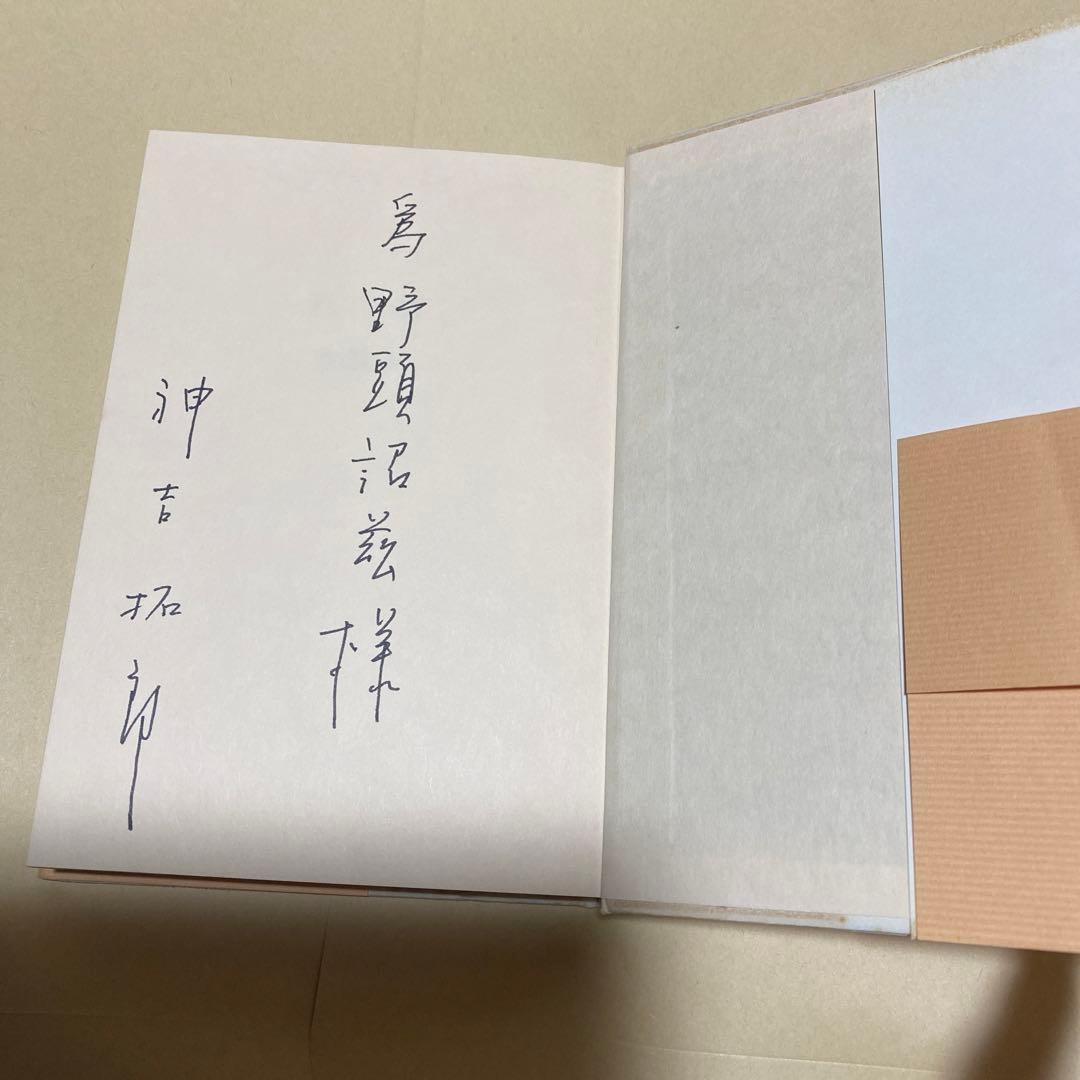 爲 野頭詔茲様
神吉拓郎